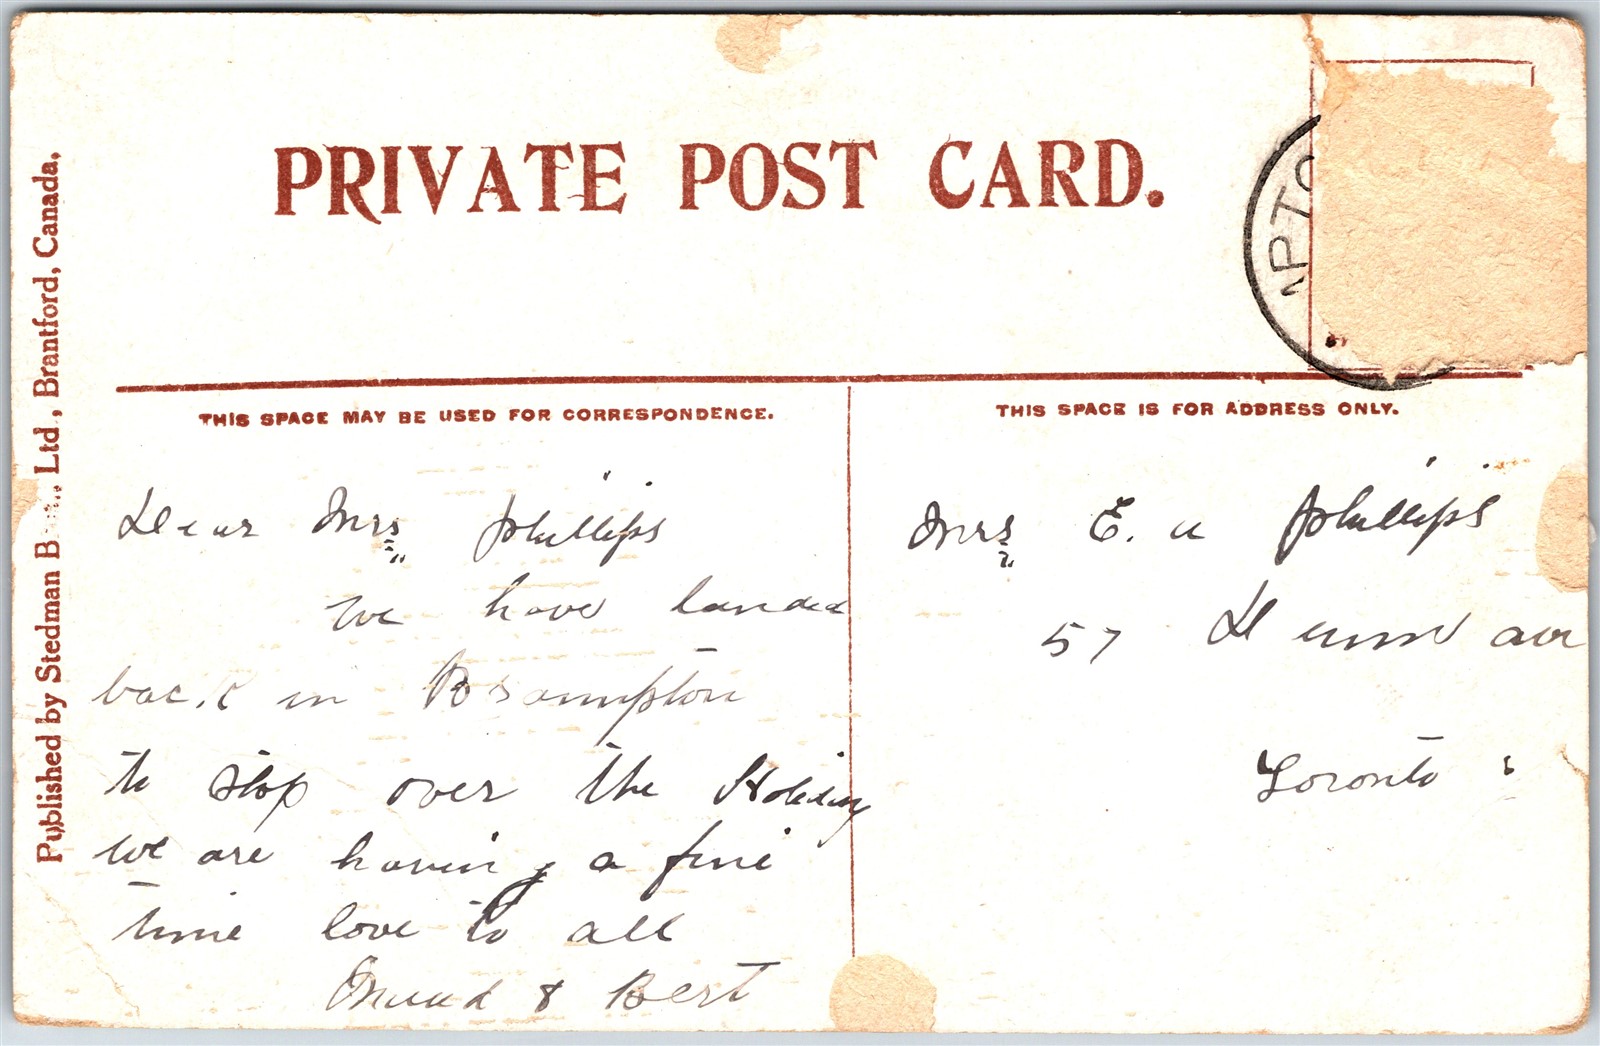 PRIVATE POST CARD.
APTO
THIS SPACE MAY BE USED FOR CORRESPONDENCE.
THIS SPACE IS FOR ADDRESS ONLY.
Published by Stedman B Ltd, Brantford, Canada.
Dear Mrs Phillips
we have landed
back in Brampton
to stop over the Holiday
we are having a fine
time love to all
Maud & Bert
Mrs E. a Phillips
57
Toronto